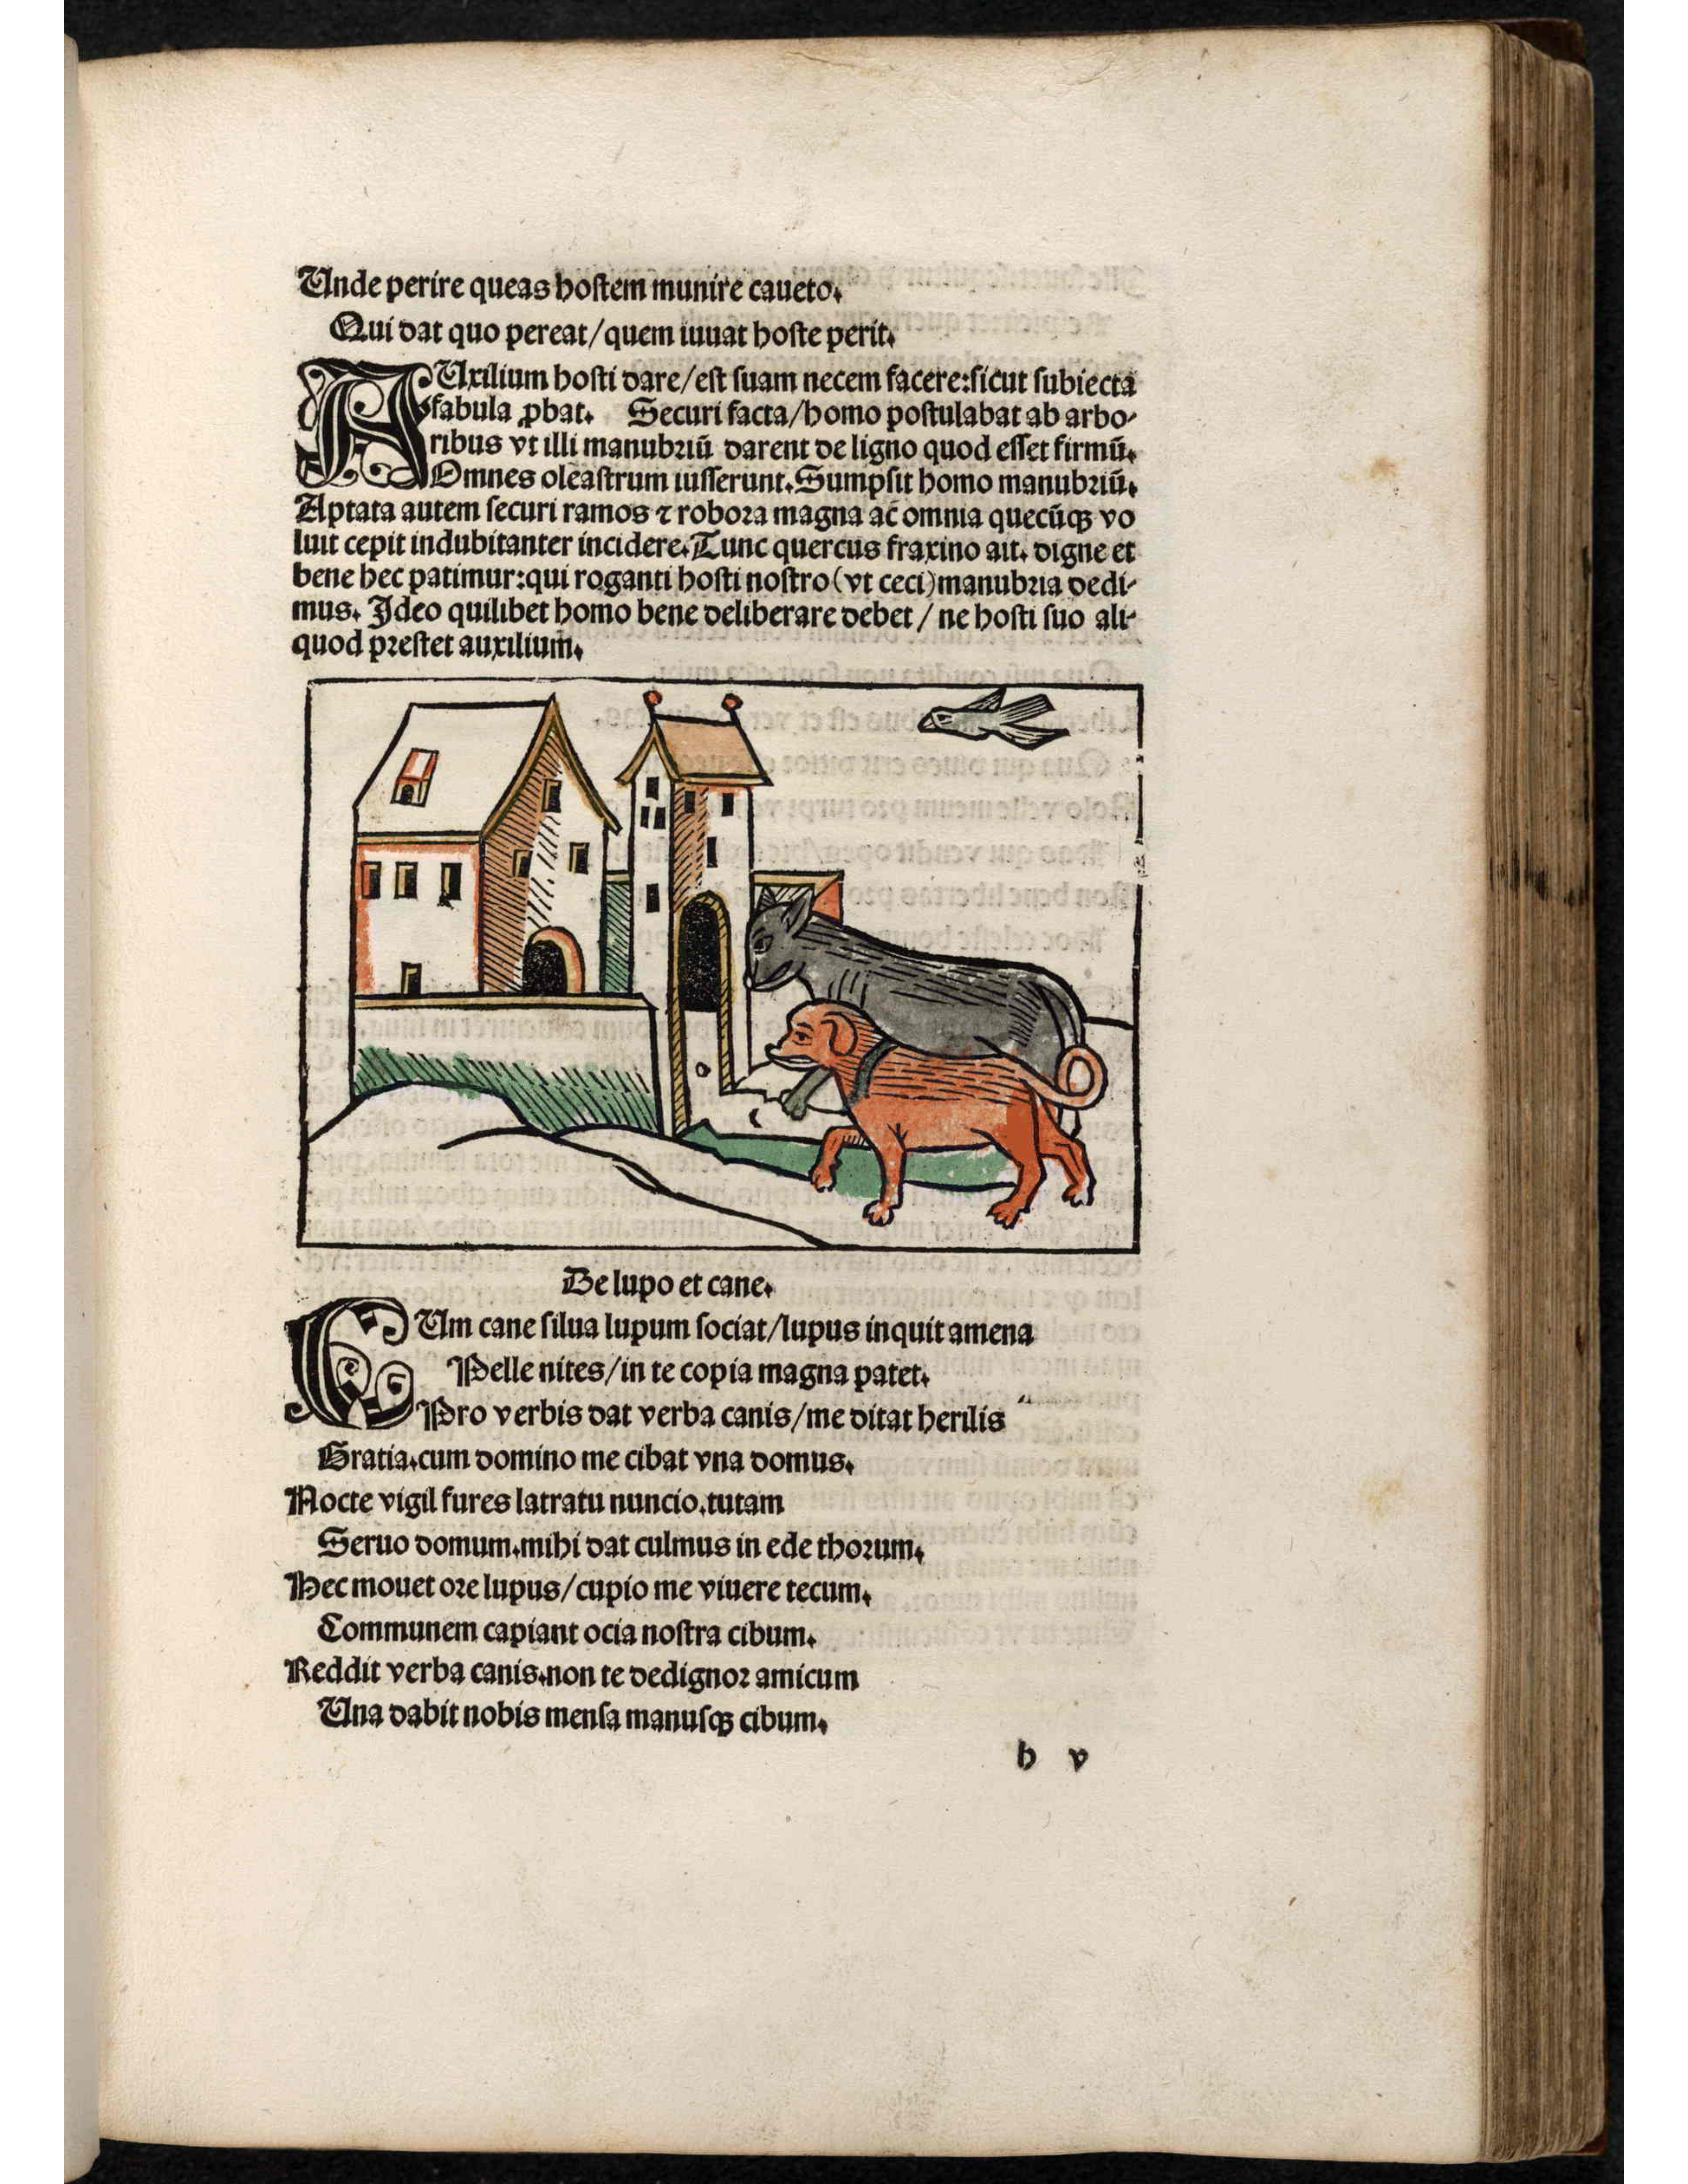 Unde perire queas hostem munire caueto.
Qui dat quo pereat/quem iuuat hoste perit.
AUxilium hosti dare/est suam necem facere:sicut subiecta
fabula ꝓbat. Securi facta/homo postulabat ab arbo-
ribus vt illi manubriū darent de ligno quod esset firmū.
Omnes oleastrum iusserunt.Sumpsit homo manubriū.
Aptata autem securi ramos ⁊ robora magna ac̄ omnia quecūqꝫ vo
luit cepit indubitanter incidere.Tunc quercus fraxino ait. digne et
bene hec patimur:qui roganti hosti nostro(vt ceci)manubria dedi-
mus. Ideo quilibet homo bene deliberare debet / ne hosti suo ali-
quod prestet auxilium.
De lupo et cane.
CUm cane silua lupum sociat/lupus inquit amena
Pelle nites/in te copia magna patet.
Pro verbis dat verba canis/me ditat herilis
Gratia.cum domino me cibat vna domus.
Nocte vigil fures latratu nuncio.tutam
Seruo domum.mihi dat culmus in ede thorum.
Hec mouet ore lupus/cupio me viuere tecum.
Communem capiant ocia nostra cibum.
Reddit verba canis.non te dedignor amicum
Una dabit nobis mensa manusqꝫ cibum.
b v